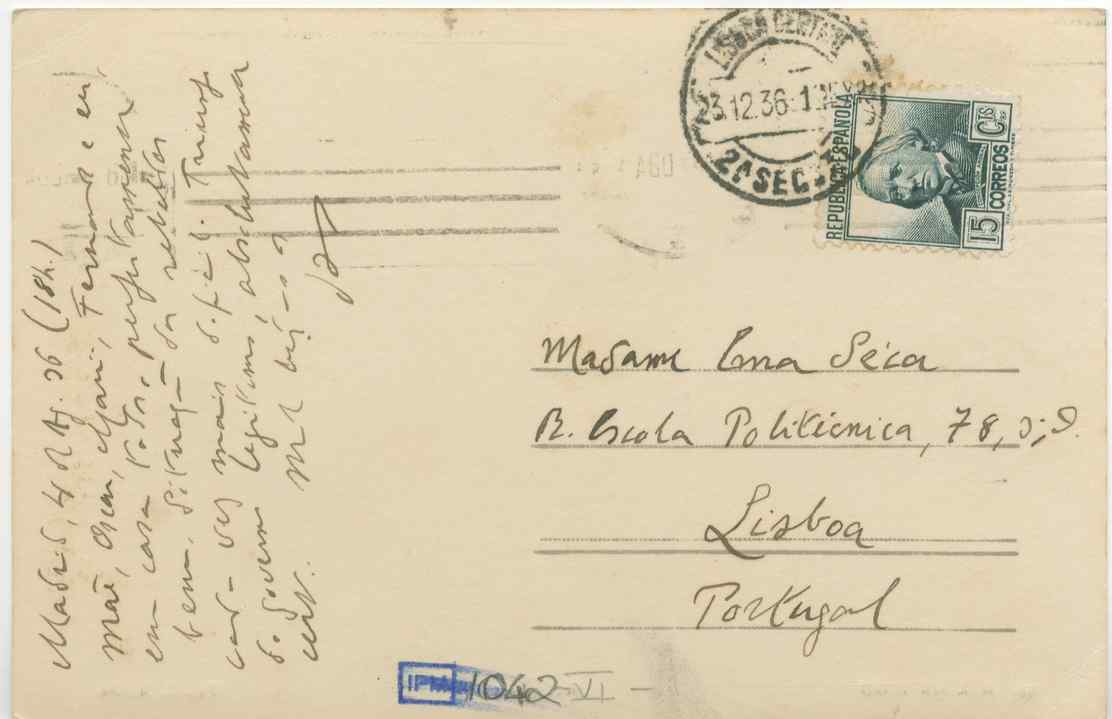 Madrid, 4 d Ag. 36 (18h.)
Mãe, Oscar, Mani, Fernanda e eu
em casa todos perfeitamente
bem. Situação dos rebeldes
cada vez mais difícil. Triunfo
do Governo legítimo, absolutamente
cert. Mil beijos
LISBOA CENTRAL
3.12.36
2ª SEC
REPUBLICA ESPAÑOLA
15 CTS
CORREOS
Madame Ema Séca
R. Escola Politécnica, 78,
Lisboa
Portugal
IPM
1042
VI